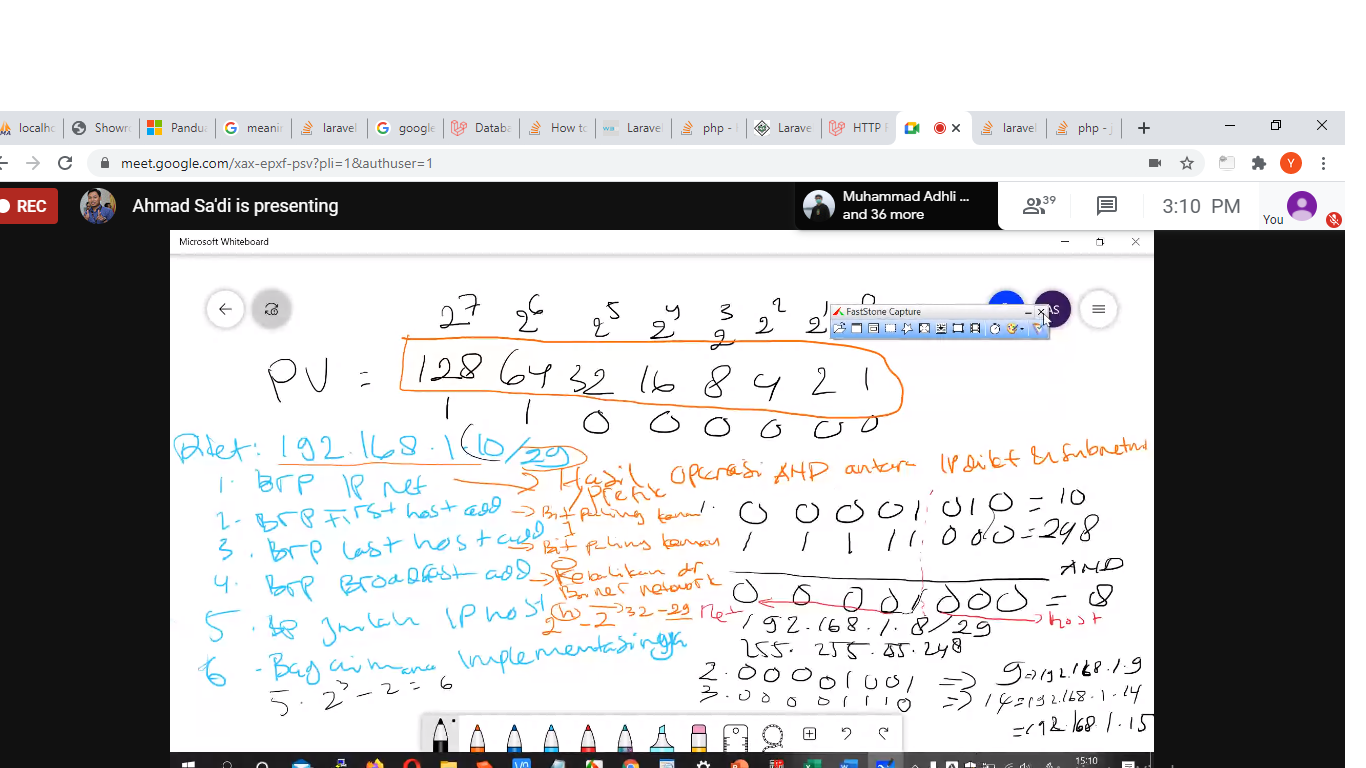 localho
Showro
Pandua
meanin
laravel
google
Databa
How to
Laravel
php -
Larave
HTTP R
laravel
php - j
meet.google.com/xax-epxf-psv?pli=1&authuser=1
Y
REC
Ahmad Sa'di is presenting
Muhammad Adhli ...
and 36 more
39
3:10 PM
You
Microsoft Whiteboard
AS
FastStone Capture
2^7 2^6 2^5 2^4 2^3 2^2 2^1
PV = 128 64 32 16 8 4 2 1
1 1 0 0 0 0 0 0
Diket: 192.168.1.10/29
1. Brp IP net → Hasil Operasi AND antara IP diket & Subnetma
/Prefik
2. Brp First host add → Bit paling kanan 1
3. Brp last host add → Bit paling kanan 0
4. Brp Broadcast add → Kebalikan dr Biner network
5. Jmlah IP host 2^(h) - 2 → 32 - 29
6. Bagaimana Implementasinya
5. 2^3 - 2 = 6
1. 0 0 0 0 1 0 1 0 = 10
1 1 1 1 1 0 0 0 = 248
AND
0 0 0 0 1 0 0 0 = 8
Net
host
192.168.1.8/29
255.255.55.248
2. 0 0 0 0 1 0 0 1 => 9 => 192.168.1.9
3. 0 0 0 0 1 1 1 0 => 14 = 192.168.1.14
= 192.168.1.15
15:10